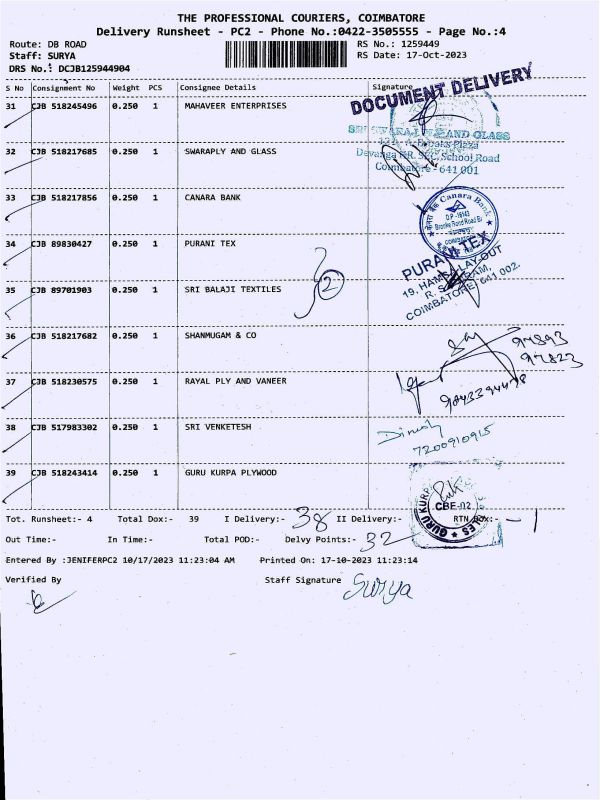 THE PROFESSIONAL COURIERS, COIMBATORE
Delivery Runsheet - PC2 - Phone No.:0422-3505555 - Page No.:4
Route: DB ROAD RS No.: 1259449
Staff: SURYA RS Date: 17-Oct-2023
DRS No.: DCJB125944904
S No Consignment No Weight PCS Consignee Details Signature
DOCUMENT DELIVERY
31 CJB 518245496 0.250 1 MAHAVEER ENTERPRISES
AND GLASS
32 CJB 518217685 0.250 1 SWARAPLY AND GLASS
School Road
Coimbatore - 641 001
33 CJB 518217856 0.250 1 CANARA BANK
Canara Bank
34 CJB 89830427 0.250 1 PURANI TEX
PURANI TEX
35 CJB 89701903 0.250 1 SRI BALAJI TEXTILES
2
COIMBATORE - 641 002.
36 CJB 518217682 0.250 1 SHANMUGAM & CO
94893
94823
37 CJB 518230575 0.250 1 RAYAL PLY AND VANEER
9843394478
38 CJB 517983302 0.250 1 SRI VENKETESH
Dinesh
7200910915
39 CJB 518243414 0.250 1 GURU KURPA PLYWOOD
GURU KURP
CBE-02
Tot. Runsheet:- 4 Total Dox:- 39 I Delivery:- 38 II Delivery:- RTN Dox:- - 1
Out Time:- In Time:- Total POD:- Delvy Points:- 32
Entered By :JENIFERPC2 10/17/2023 11:23:04 AM Printed On: 17-10-2023 11:23:14
Verified By Staff Signature Surya